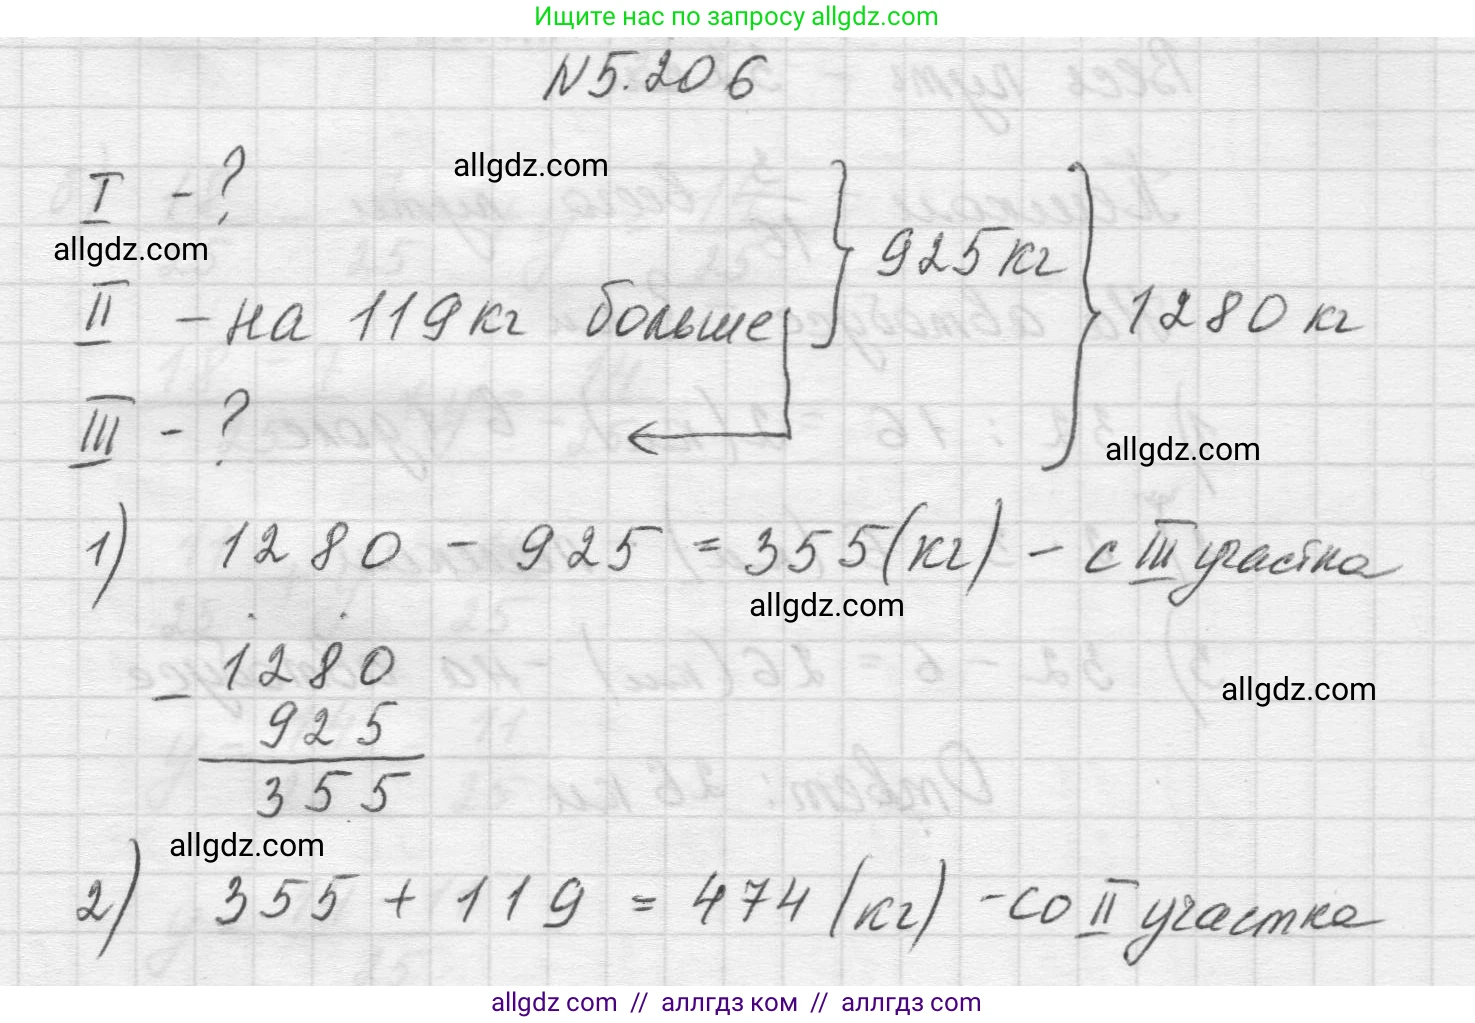 Ищите нас по запросу allgdz.com
N5.206
allgdz.com
I - ?
allgdz.com
925 кг
II - на 119 кг больше
1280 кг
III - ?
allgdz.com
1) 1280 - 925 = 355 (кг) - с III участка
allgdz.com
- 1280
allgdz.com
925
355
allgdz.com
2) 355 + 119 = 474 (кг) - со II участка
allgdz.com // аллгдз ком // аллгдз com